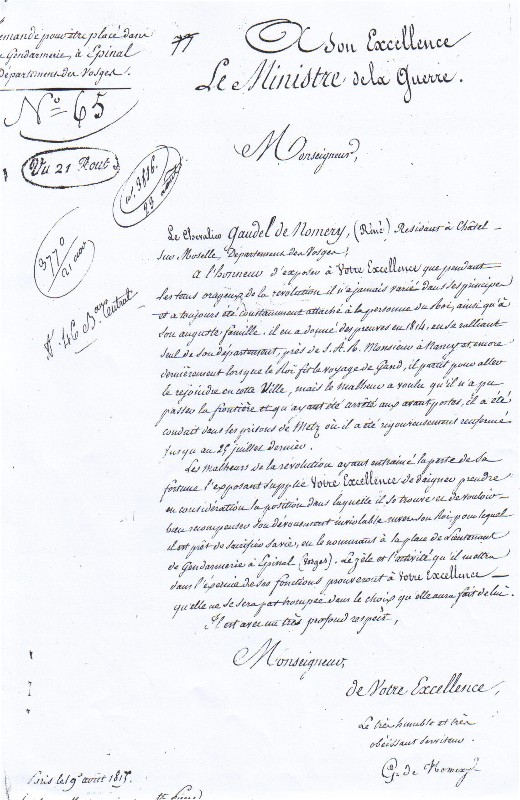 emande pour être placé dans
a Gendarmerie, à Epinal
Département des Vosges.
77
A Son Excellence
Le Ministre de la Guerre.
N° 65
Vu 21 Aout
Monseigneur,
3770
21 aou
N. 46 Bau Central
Le Chevalier Gaudel de Nomery, (Réné) Residant à Châtel
sur Moselle, Département des Vosges;
A l'honneur d'exposer à Votre Excellence que pendant
les tems orageux de la révolution il n'a jamais varié dans ses principes
et a toujours été constamment attaché à la personne du Roi, ainsi qu'à
son auguste famille. il en a donné des preuves en 1814, en se ralliant
seul de son département, près de S. A. R. Monsieur à Nancy et, encore
dernièrement lorsque le Roi fit le voyage de Gand, il partit pour aller
le rejoindre en cette Ville, mais le malheur a voulu qu'il n'a pu
passer la frontière et qu'ayant été arrêté aux avant postes, il a été
conduit dans les prisons de Metz où il a été rigoureusement renfermé
jusqu'au 25 juillet dernier.
Les malheurs de la révolution ayant entrainé la perte de sa
fortune l'exposant supplie Votre Excellence de daigner prendre
en considération la position dans laquelle il se trouve et de vouloir
bien recompenser son dévouement inviolable envers son Roi, pour lequel
il est prêt de sacrifier sa vie, en le nommant à la place de Lieutenant
de Gendarmerie à Epinal (Vosges). Le zèle et l'activité qu'il mettra
dans l'exercice de ses fonctions prouveront à Votre Excellence
qu'elle ne se sera pas trompée dans le choix qu'elle aura fait de lui.
Il est avec un très profond respect,
Monseigneur,
de Votre Excellence,
Le très humble et très
obéissant serviteur
G. de Nomery
Paris le 9 août 1815.